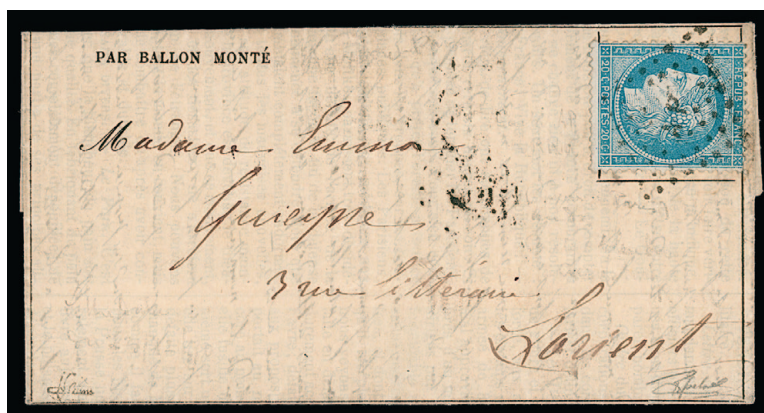 PAR BALLON MONTÉ
20 C POSTES 20 C
REPUB FRANC
Madame Emma
Guieysse
3 rue littéraire
Lorient